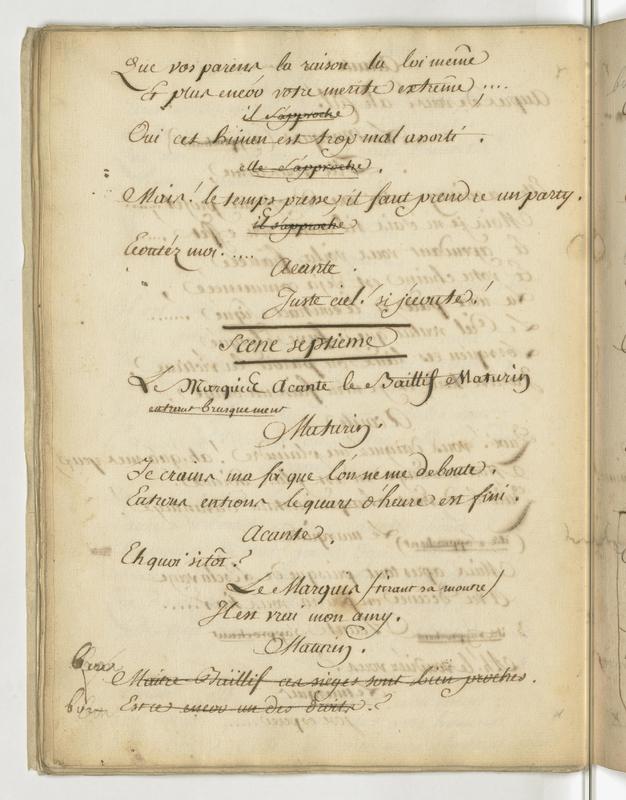 Que vos parens la raison la loi meme
Et plus encor votre merite extreme ....
il s'approche
Oui cet himen est trop mal asorti.
elle s'approche.
Mais! le temps presse, il faut prendre un party.
il s'approche
Ecoutéz moi.....
Acante.
Juste ciel! si j'ecoute!
Scene septieme
Le Marquis Acante le Baillif Maturin
entrant brusquement
Maturin.
Je crains ma foi que l'on ne me deboute.
Entrons entrons le quart d'heure est fini.
Acante.
Eh quoi sitôt?
Le Marquis (tirant sa montre)
Il est vrai mon amy.
Maturin.
Maitre Baillif ces sieges sont bien proches.
Est ce encor un des droits?